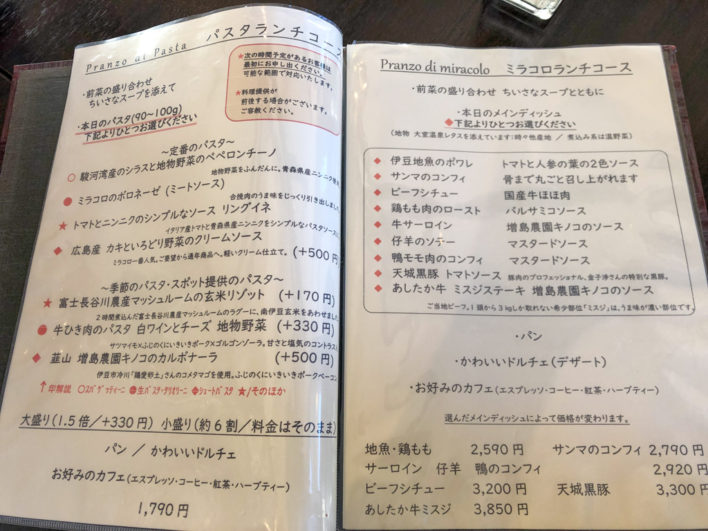 Pranzo di Pasta パスタランチコース
・前菜の盛り合わせ
ちいさなスープを添えて
・本日のパスタ(90~100g)
下記よりひとつお選びください
★次の時間予定があるお客様は
最初にお申し出ください。
可能な範囲で対応いたします。
★料理提供が
前後する場合がございます。
ご容赦ください。
~定番のパスタ~
○ 駿河湾産のシラスと地物野菜のペペロンチーノ
地物野菜をふんだんに。青森県産ニンニク使用
● ミラコロのボロネーゼ (ミートソース)
合挽肉のうま味をじっくり引き出しました
★ トマトとニンニクのシンプルなソース リングイネ
イタリア産トマトと青森県産ニンニクをシンプルなパスタソースに
◆ 広島産 カキといろどり野菜のクリームソース (+500円)
ミラコロ一番人気。ご要望から通年商品へ。軽いクリーム仕立て。
~季節のパスタ・スポット提供のパスタ~
★ 富士長谷川農産マッシュルームの玄米リゾット (+170円)
2時間煮込んだ富士長谷川農産マッシュルームのラグーに、南伊豆玄米をあわせました
● 牛ひき肉のパスタ 白ワインとチーズ 地物野菜 (+330円)
サツマイモ×ふじのくにいきいきポーク×ゴルゴンゾーラ。甘さと塩気のコントラスト
◆ 韮山 増島農園キノコのカルボナーラ (+500円)
伊豆市冷川「鶏愛卵土」さんのコメタマゴを使用。ふじのくにいきいきポークベーコン
↑印解説 ○スパゲッティーニ ●生パスタ・タリオリーニ ◆ショートパスタ ★/そのほか
大盛り(1.5倍/+330円) 小盛り(約6割/料金はそのまま)
パン / かわいいドルチェ
お好みのカフェ(エスプレッソ・コーヒー・紅茶・ハーブティー)
1,790円
Pranzo di miracolo ミラコロランチコース
・前菜の盛り合わせ ちいさなスープとともに
・本日のメインディッシュ
◆下記よりひとつお選びください
(地物 大室温泉レタスを添えています:時々他産地 / 煮込み系は温野菜)
◆ 伊豆地魚のポワレ トマトと人参の葉の2色ソース
◆ サンマのコンフィ 骨まで丸ごと召し上がれます
◆ ビーフシチュー 国産牛ほほ肉
◆ 鶏もも肉のロースト バルサミコソース
◆ 牛サーロイン 増島農園キノコのソース
◆ 仔羊のソテー マスタードソース
◆ 鴨モモ肉のコンフィ マスタードソース
◆ 天城黒豚 トマトソース 豚肉のプロフェッショナル、金子淳さんの特別な黒豚。
◆ あしたか牛 ミスジステーキ 増島農園キノコのソース
ご当地ビーフ。1頭から3kgしか取れない希少部位「ミスジ」は、うま味が濃い部位です。
・パン
・かわいいドルチェ(デザート)
・お好みのカフェ(エスプレッソ・コーヒー・紅茶・ハーブティー)
選んだメインディッシュによって価格が変わります。
地魚・鶏もも 2,590円 サンマのコンフィ 2,790円
サーロイン 仔羊 鴨のコンフィ 2,920円
ビーフシチュー 3,200円 天城黒豚 3,300円
あしたか牛ミスジ 3,850円